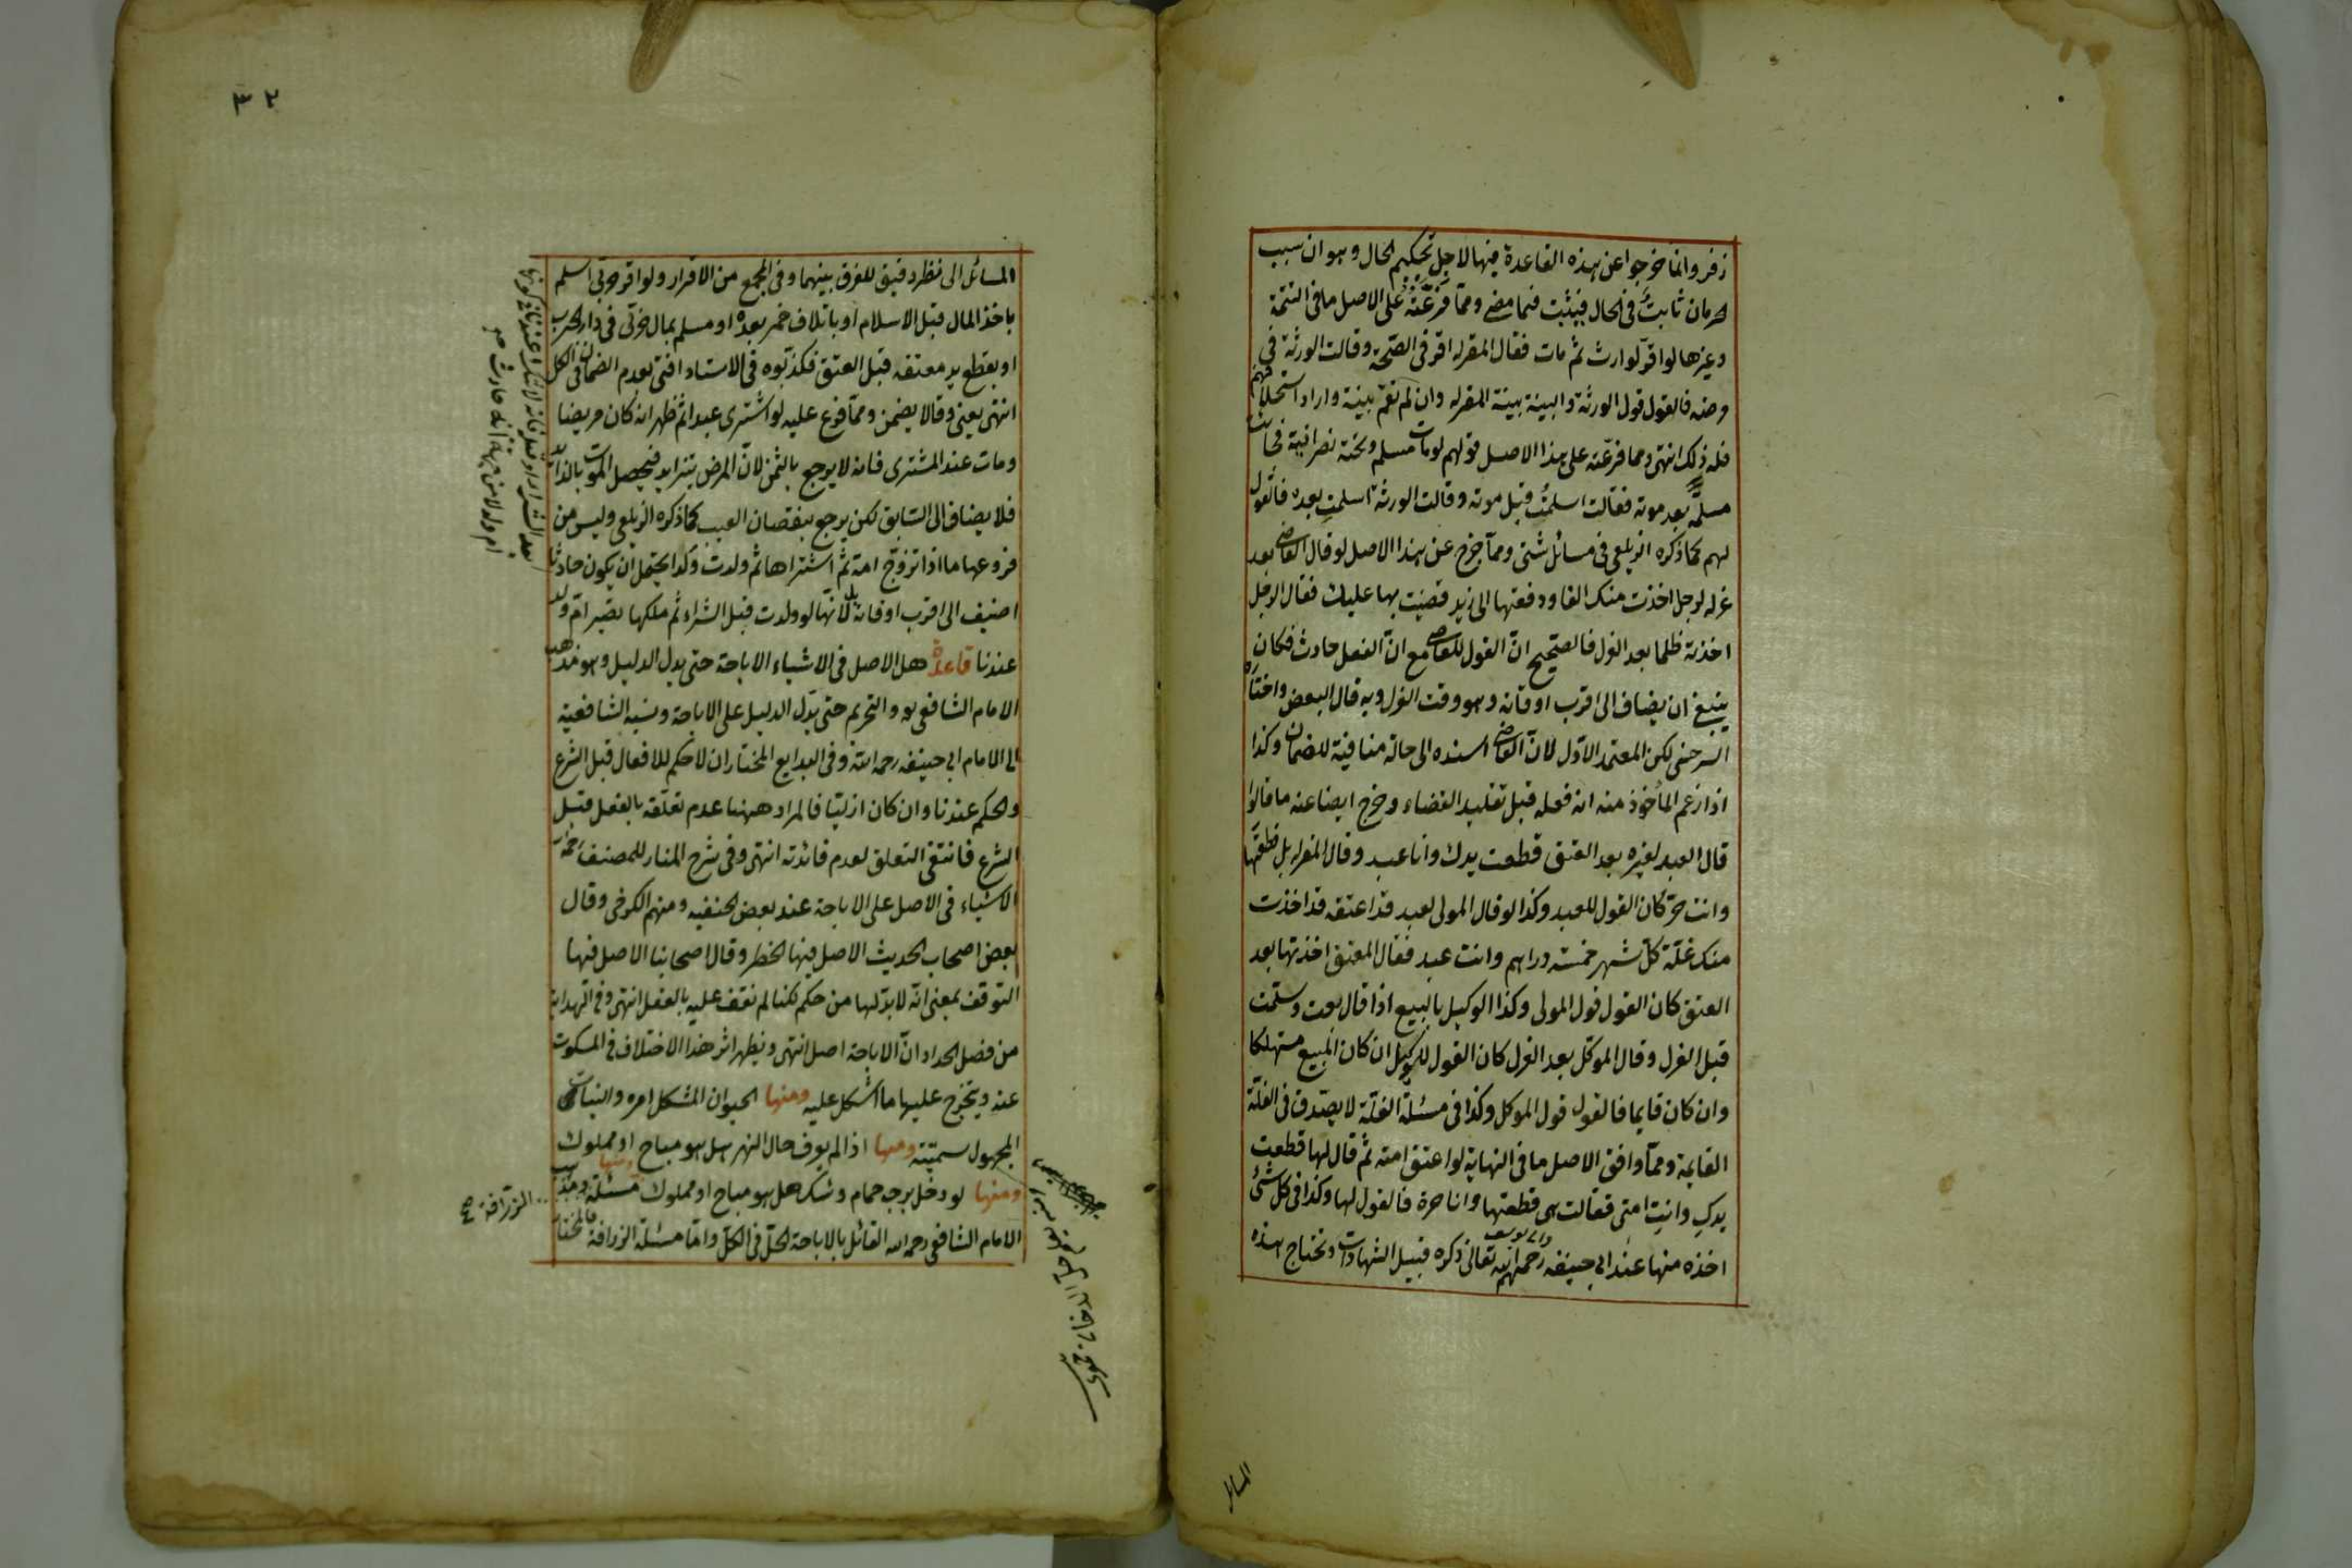 زفر وانما خرجوا عن هذه القاعدة فيها لاجل تحكيم الحال وهو ان سبب
الحرمان ثابت في الحال فيثبت فيما مضى ومما فرعته على الاصل ما في اليتيمة
وغيرها لو اقر لوارث ثم مات فقال المقر له اقر في الصحة وقالت الورثة في
مرضه فالقول قول الورثة والبينة بينة المقر له وان لم تقم بينة واراد استحلافهم
فله ذلك انتهى ومما فرعته على هذا الاصل قولهم لو مات مسلم وتحته نصرانية فجائت
مسلمة بعد موته فقالت اسلمت قبل موته وقالت الورثة اسلمت بعده فالقول
لهم كما ذكره الزيلعي في مسائل شتى ومما خرج عن هذا الاصل لو قال القاضي بعد
عزله لرجل اخذت منك الفا ودفعتها الى زيد قضيت بها عليك فقال الرجل
اخذته ظلما بعد العزل فالصحيح ان القول للقاضي مع ان الفعل حادث فكان
ينبغي ان يضاف الى اقرب اوقاته وهو وقت العزل وبه قال البعض واختاره
السرخسي لكن المعتمد الاول لان القاضي اسنده الى حالة منافية للضمان وكذا
اذا زعم المأخوذ منه انه فعله قبل تقليد القضاء وخرج ايضا عنه ما قالوا
قال العبد لغيره بعد العتق قطعت يدك وانا عبد وقال المقر له بل قطعتها
وانت حر كان القول للعبد وكذا لو قال المولى لعبد قد اعتقه قد اخذت
منك غلة كل شهر خمسة دراهم وانت عبد فقال المعتق اخذتها بعد
العتق كان القول قول المولى وكذا الوكيل بالبيع اذا قال بعت وسلمت
قبل العزل وقال الموكل بعد العزل كان القول للوكيل ان كان المبيع مستهلكا
وان كان قايما فالقول قول الموكل وكذا في مسئلة الغلة لا يصدق في الغلة
القايمة ومما وافق الاصل ما في النهاية لو اعتق امته ثم قال لها قطعت
يدك وانت امتي فقالت هي قطعتها وانا حرة فالقول لها وكذا في كل شئ
اخذه منها عند ابي حنيفة وابي يوسف رحمهم الله تعالى ذكره قبيل الشهادات وتحتاج هذه
المسائل
٣٢
المسائل الى نظر دقيق للفرق بينهما وفي المجمع من الاقرار ولو اقر حربي اسلم
باخذ المال قبل الاسلام او باتلاف خمر بعده او مسلم بمال حربي في دار الحرب
او بقطع يد معتقه قبل العتق فكذبوه في الاسناد افتى بعدم الضمان في الكل
انتهى يعني وقالا يضمن ومما فرع عليه لو اشترى عبدا ثم ظهر انه كان مريضا
ومات عند المشتري فانه لا يرجع بالثمن لان المرض يتزايد فيحصل الموت بالزائد
فلا يضاف الى السابق لكن يرجع بنقصان العيب كما ذكره الزيلعي وليس من
فروعها ما اذا تزوج امة ثم اشتراها ثم ولدت ولدا يحتمل ان يكون حادثا
اضيف الى اقرب اوقاته لانها لو ولدت قبل الشراء ثم ملكها تصير ام ولد
عندنا قاعدة هل الاصل في الاشياء الاباحة حتى يدل الدليل وهو مذهب
الامام الشافعي او التحريم حتى يدل الدليل على الاباحة ونسبه الشافعية
الى الامام ابي حنيفه رحمه الله وفي البدايع المختار ان لا حكم للافعال قبل الشرع
والحكم عندنا وان كان ازليا فالمراد ههنا عدم تعلقه بالفعل قبل
الشرع فانتفى التعلق لعدم فائدته انتهى وفي شرح المنار للمصنف
الاشياء في الاصل على الاباحة عند بعض الحنفيه ومنهم الكرخي وقال
بعض اصحاب الحديث الاصل فيها الحظر وقال اصحابنا الاصل فيها
التوقف بمعنى انه لا بد لها من حكم لكنا لم نقف عليه بالفعل انتهى وفي الهداية
من فصل الحداد ان الاباحة اصل انتهى ويظهر اثر هذا الاختلاف في المسكوت
عنه ويتخرج عليها ما اشكل عليه ومنها الحيوان المشكل امره والنبات
المجهول سميته ومنها اذا لم يعرف حال النهر هل هو مباح او مملوك
ومنها لو دخل برج حمام وشك هل هو مباح او مملوك ومنها مسئلة
الامام الشافعي رحمه الله القائل بالاباحة الحل في الكل واما مسئلة الزرافة فالمختار
الزرافة صح